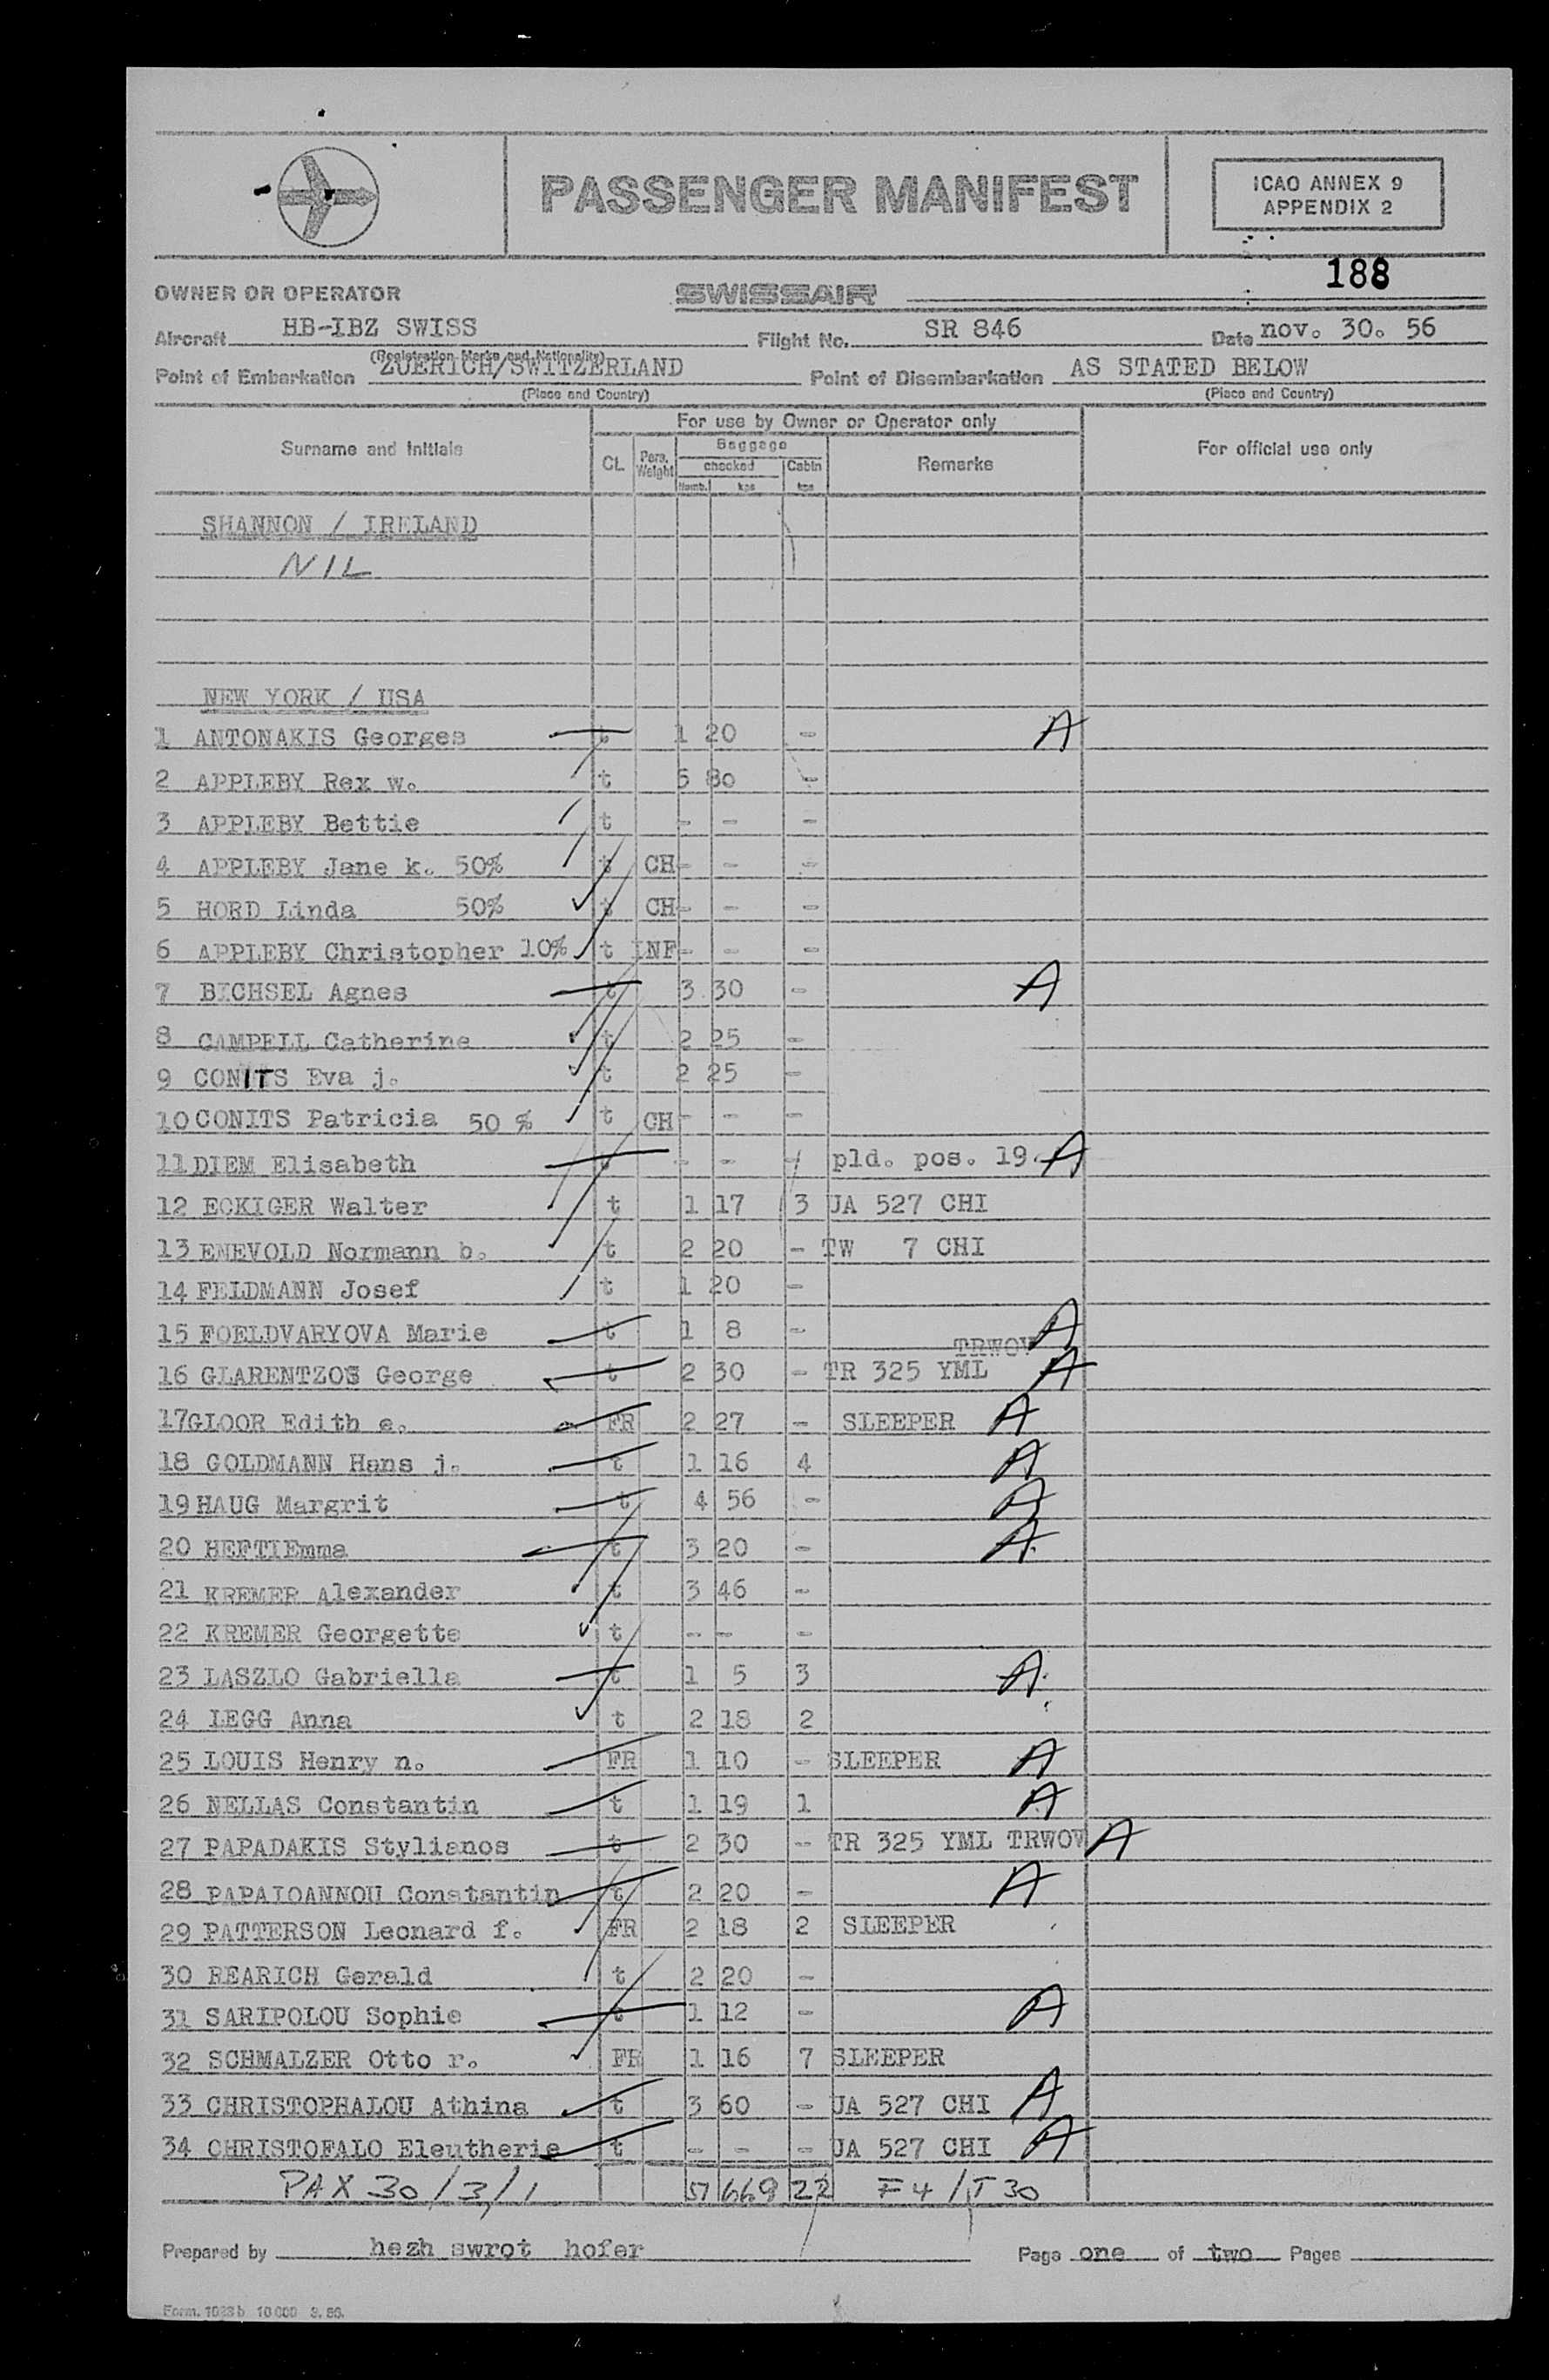 PASSENGER MANIFEST
ICAO ANNEX 9
APPENDIX 2
188
OWNER OR OPERATOR SWISSAIR
Aircraft HB-IBZ SWISS Flight No. SR 846 Date nov. 30. 56
(Registration Marks and Nationality)
Point of Embarkation ZUERICH/SWITZERLAND Point of Disembarkation AS STATED BELOW
(Place and Country) (Place and Country)
For use by Owner or Operator only
Surname and Initials CL. Pers. Weight Baggage checked Numb. kgs Cabin kgs Remarks For official use only
SHANNON / IRELAND
NIL
NEW YORK / USA
1 ANTONAKIS Georges t 1 20 - A
2 APPLEBY Rex w. t 5 80 -
3 APPLEBY Bettie t - - -
4 APPLEBY Jane k. 50% t CH - - -
5 HORD Linda 50% t CH - - -
6 APPLEBY Christopher 10% t INF - - -
7 BICHSEL Agnes t 3 30 - A
8 CAMPELL Catherine t 2 25 -
9 CONITS Eva j. t 2 25 -
10 CONITS Patricia 50 % t CH - - -
11 DIEM Elisabeth t - - - pld. pos. 19. A
12 ECKIGER Walter t 1 17 3 UA 527 CHI
13 ENEVOLD Normann b. t 2 20 - TW 7 CHI
14 FELDMANN Josef t 1 20 -
15 FOELDVARYOVA Marie t 1 8 - A
TRWOW
16 GLARENTZOS George t 2 30 - TR 325 YML A
17 GLOOR Edith e. FR 2 27 - SLEEPER A
18 GOLDMANN Hans j. t 1 16 4 A
19 HAUG Margrit t 4 56 - A
20 HEFTI Emma t 3 20 - A
21 KREMER Alexander t 3 46 -
22 KREMER Georgette t - - -
23 LASZLO Gabriella t 1 5 3 A
24 LEGG Anna t 2 18 2
25 LOUIS Henry n. FR 1 10 - SLEEPER A
26 NELLAS Constantin t 1 19 1 A
27 PAPADAKIS Stylianos t 2 30 - TR 325 YML TRWOW A
28 PAPAIOANNOU Constantin t 2 20 - A
29 PATTERSON Leonard f. FR 2 18 2 SLEEPER
30 REARICH Gerald t 2 20 -
31 SARIPOLOU Sophie t 1 12 - A
32 SCHMALZER Otto r. FR 1 16 7 SLEEPER
33 CHRISTOPHALOU Athina t 3 60 - UA 527 CHI A
34 CHRISTOFALO Eleutherie t - - - UA 527 CHI A
PAX 30/3/1 57 669 22 F4/T30
Prepared by hezh swrot hofer Page one of two Pages
Form. 1023b 10 000 3. 56.